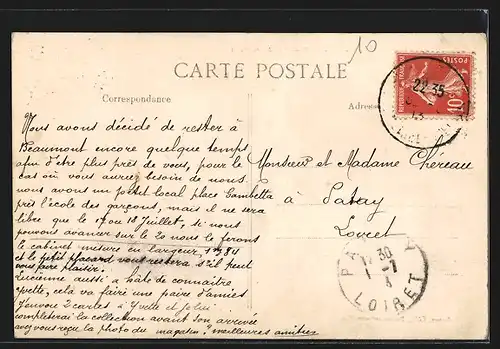 10
CARTE POSTALE
Correspondance
Adresse
REPUBLIQUE FRANÇAISE
POSTES
10c
22 35
13
Nous avons décidé de rester à
Beaumont encore quelque temps
afin d'être plus près de vous, pour le
cas où vous auriez besoin de nous.
nous avons un petit local place Gambetta
près l'école des garçons, mais il ne sera
libre que le 17 ou 18 Juillet, si nous
pouvons avancer sur le 20 nous le ferons
le cabinet mesure en largeur 1m84
et le petit placard vous restera s'il peut
vous faire plaisir.
Lucienne aussi a hâte de connaitre
Yvette, cela va faire une paire d'amies
J'envoie 2 cartes à Yvette et
complèterai la collection avant son arrivée
avez vous reçu la photo du magasin? meilleures amitiés
Monsieur et Madame Chereau
à Patay
Loiret
PA
12 30
1 -7
LOIRET